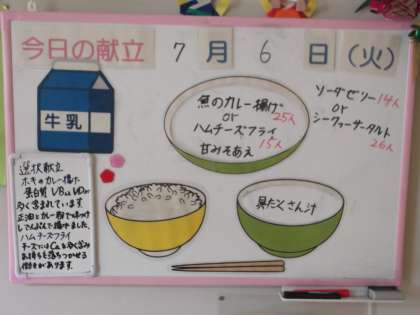 今日の献立 7月6日(火)
牛乳
魚のカレー揚げ 25人
or
ハムチーズフライ 15人
甘みそあえ
ソーダゼリー 14人
or
シークヮーサータルト
26人
具だくさん汁
選択献立
ホキのカレー揚げ
多く含まれています
しでんぷんで揚げました。
ハムチーズフライ
チーズにはCaも多く含み
気持ちを落ちつかせる
働きがあります。